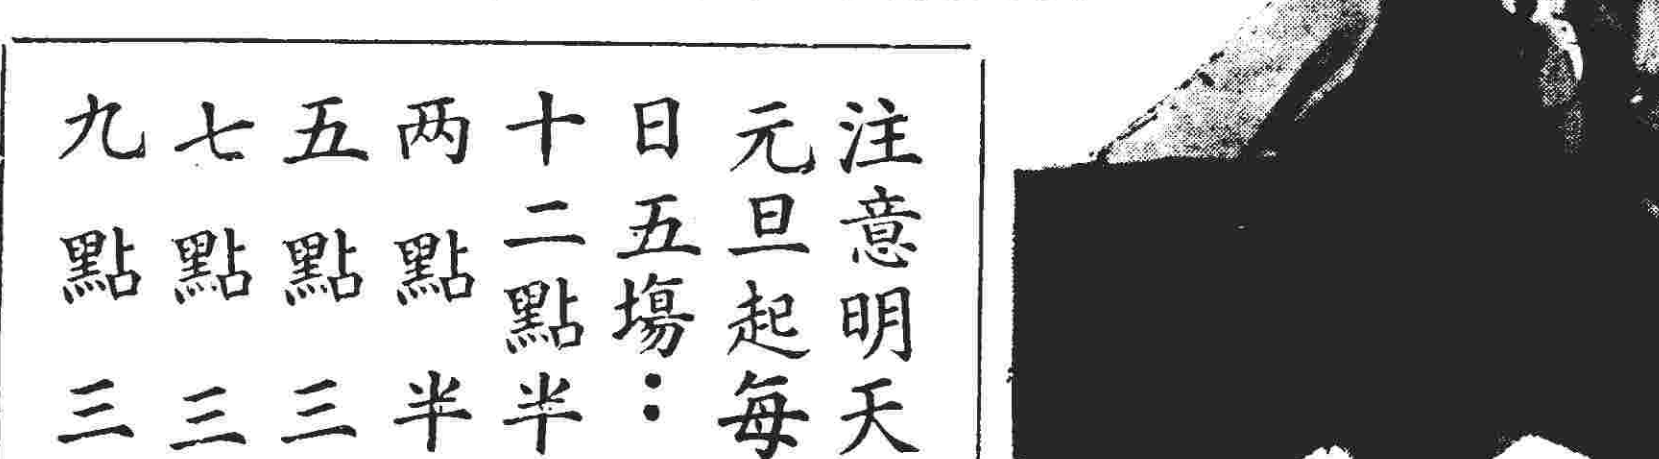 注意明天
元旦起每
日五塲：
十二點半
两點半
五點三
七點三
九點三